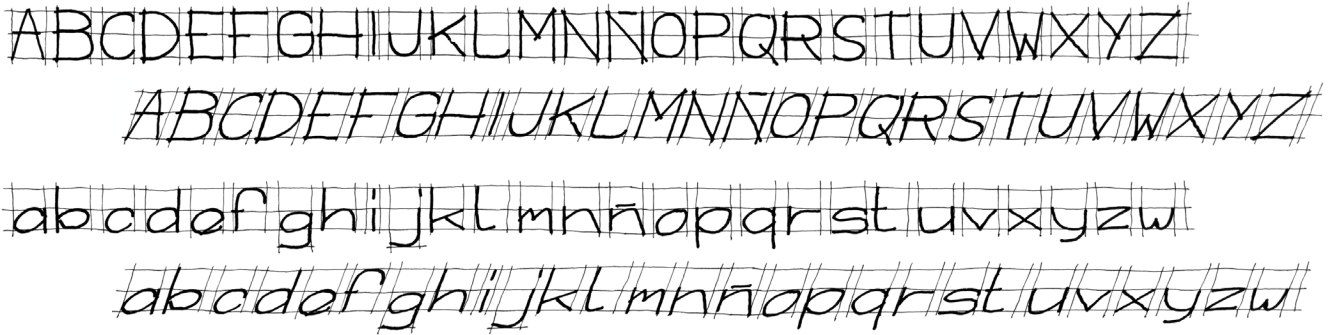 ABCDEFGHIJKLMNÑOPQRSTUVWXYZ
ABCDEFGHIJKLMNÑOPQRSTUVWXYZ
abcdefghijklmnñopqrstuvxyzw
abcdefghijklmnñopqrstuvxyzw